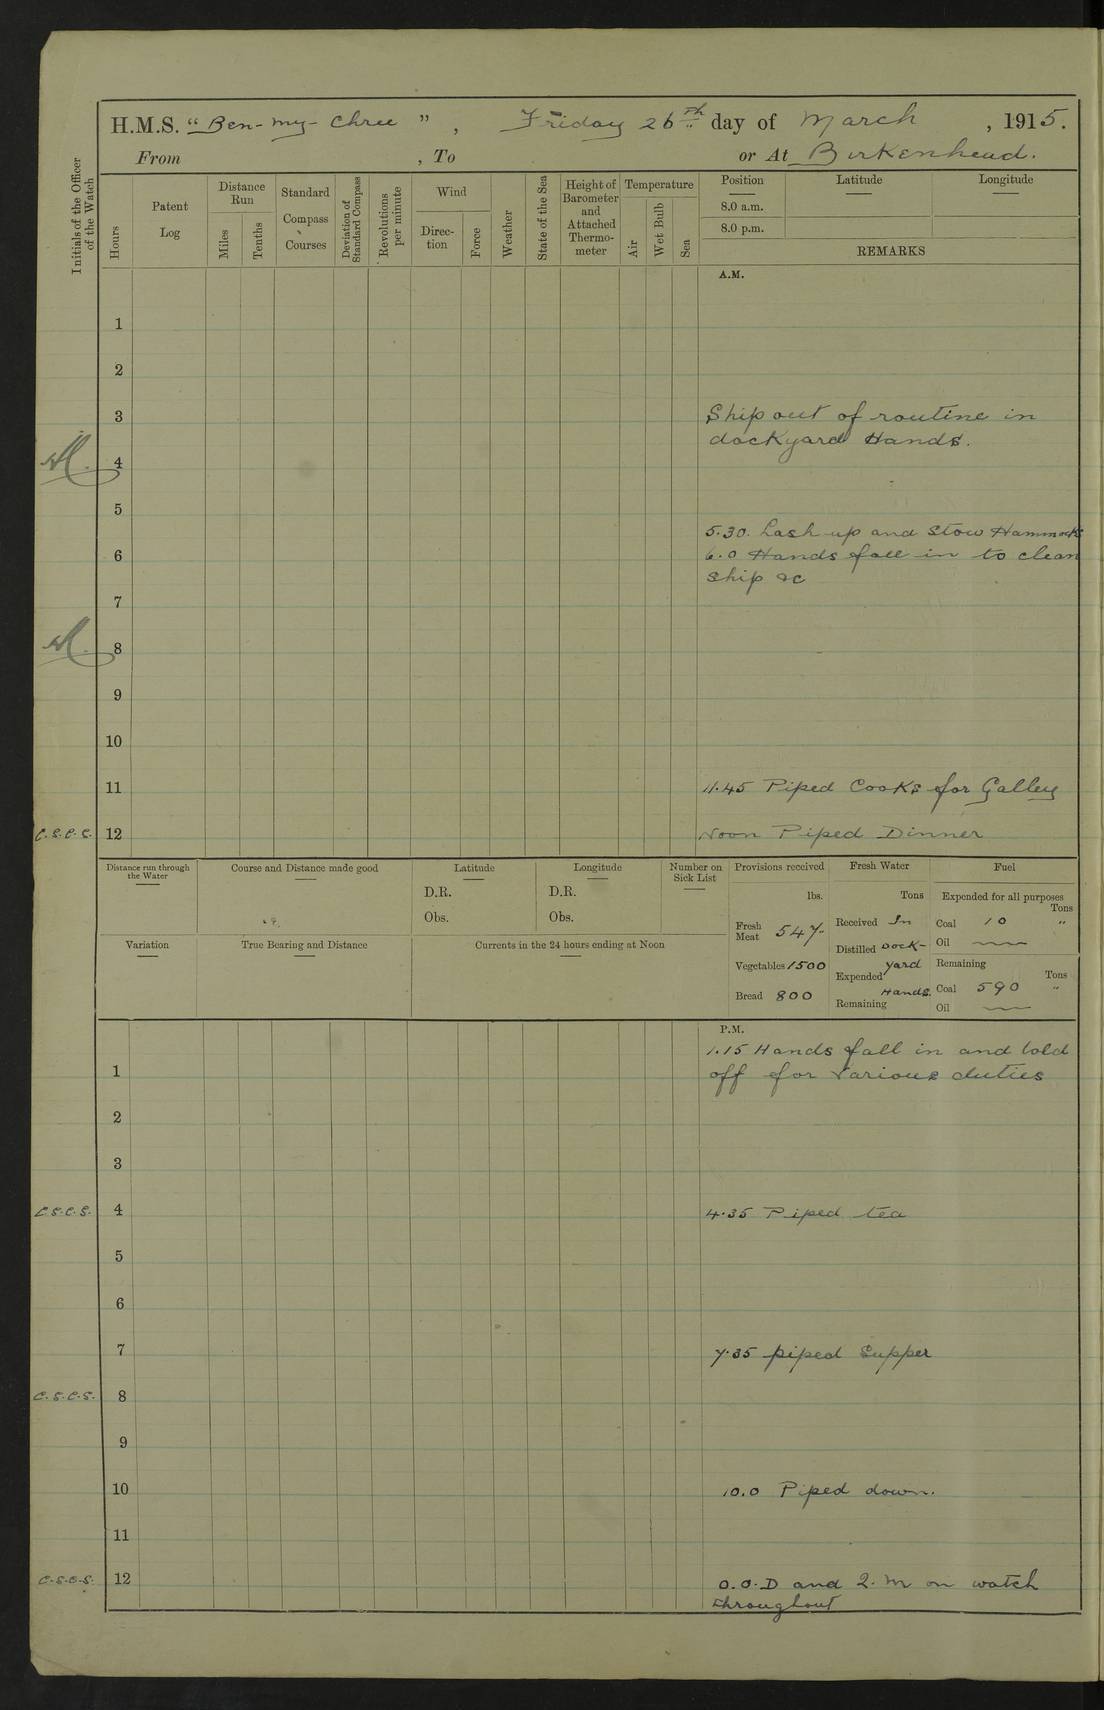 H.M.S. "Ben-my-Chree", Friday 26th day of March, 1915.
From , To or At Birkenhead.
Initials of the Officer of the Watch
Hours
Patent Log
Distance Run
Miles
Tenths
Standard Compass Courses
Deviation of Standard Compass
Revolutions per minute
Wind
Direction
Force
Weather
State of the Sea
Height of Barometer and Attached Thermometer
Temperature
Air
Wet Bulb
Sea
Position
8.0 a.m.
8.0 p.m.
Latitude
Longitude
REMARKS
A.M.
1
2
3 Ship out of routine in
dockyard Hands.
4
5
5.30. Lash up and Stow Hammocks
6 6.0 Hands fall in to clean
Ship &c
7
8
9
10
11 11.45 Piped Cooks for Galley
C.S.C.S. 12 Noon Piped Dinner
Distance run through the Water
Course and Distance made good
Latitude
D.R.
Obs.
Longitude
D.R.
Obs.
Number on Sick List
Variation
True Bearing and Distance
Currents in the 24 hours ending at Noon
Provisions received
lbs.
Fresh Meat 547
Vegetables 1500
Bread 800
Fresh Water
Tons
Received In
Distilled Dock-
Expended yard
Hands.
Remaining
Fuel
Expended for all purposes
Tons
Coal 10 "
Oil
Remaining
Tons
Coal 590 "
Oil
P.M.
1.15 Hands fall in and told
1 off for various duties
2
3
C.S.C.S. 4 4.35 Piped tea
5
6
7 7.35 piped Supper
C.S.C.S. 8
9
10 10.0 Piped down.
11
C.S.C.S. 12 O.O.D and Q.M on watch
throughout